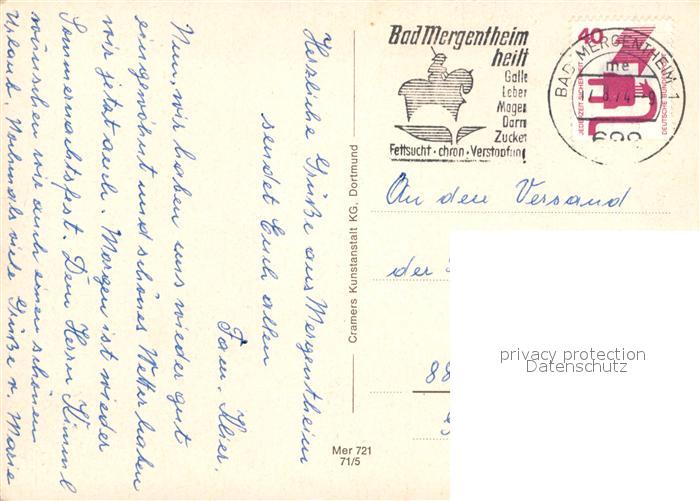 Herzliche Grüße aus Mergentheim
sendet Euch allen
Fam. Klier.
Nun, wir haben uns wieder gut
eingewöhnt und schönes Wetter haben
wir jetzt auch. Morgen ist wieder
Sommernachtsfest. Dem Herrn Kimml
wünschen wir auch einen schönen
Urlaub. Nochmals viele Grüße v. Marie
Cramers Kunstanstalt KG. Dortmund
Mer 721
71/5
Bad Mergentheim
heilt
Galle
Leber
Magen
Darm
Zucker
Fettsucht · chron · Verstopfung
!
40
JEDERZEIT SICHERHEIT
DEUTSCHE BUNDESPOST
BAD MERGENTHEIM 1
me
699
An den Versand
der
88
privacy protection
Datenschutz